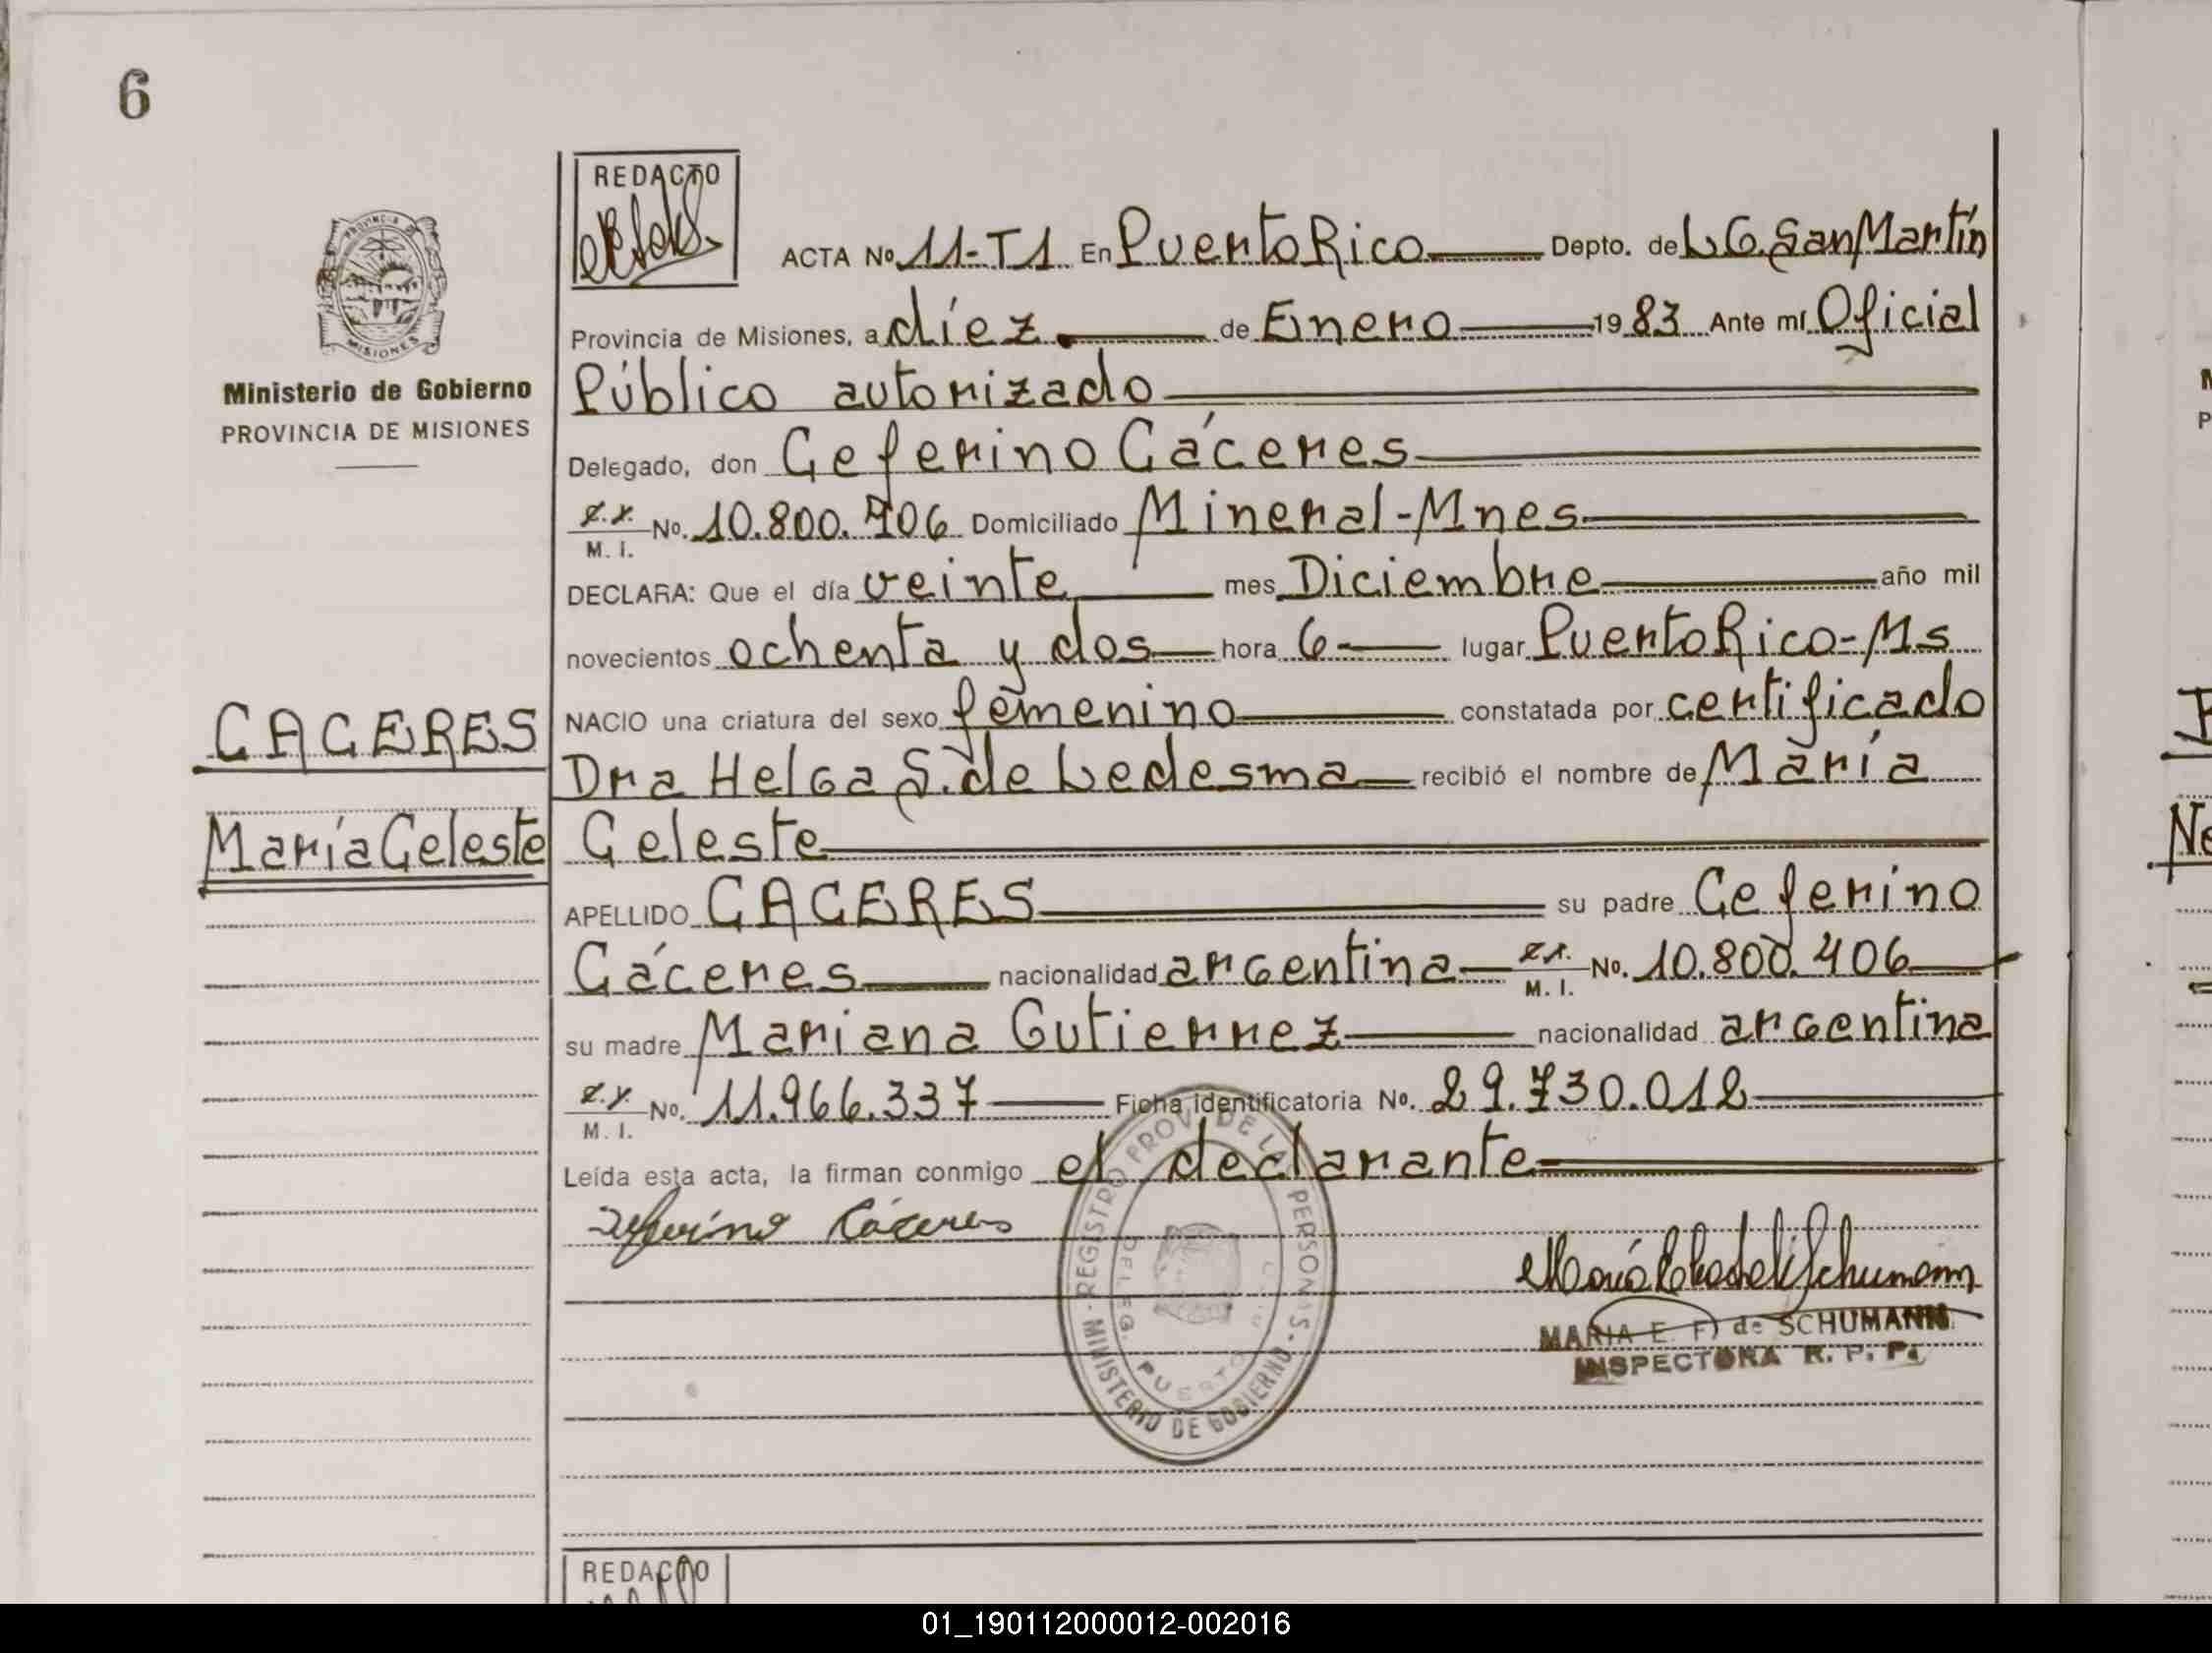 6
REDACTO
ACTA Nº 11-T1 En Puerto Rico Depto. de L.G. San Martín
Provincia de Misiones, a diez de Enero 1983 Ante mí Oficial
Ministerio de Gobierno
PROVINCIA DE MISIONES
Público autorizado
Delegado, don Ceferino Cáceres
M. I. No. 10.800.406 Domiciliado Mineral-Mnes
DECLARA: Que el día veinte mes Diciembre año mil
novecientos ochenta y dos hora 6 lugar Puerto Rico-Ms
NACIO una criatura del sexo femenino constatada por certificado
CACERES
Dra Helga S. de Ledesma recibió el nombre de María
María Celeste
Celeste
APELLIDO CACERES su padre Ceferino
Cáceres nacionalidad argentina M. I. No. 10.800.406
su madre Mariana Gutierrez nacionalidad argentina
M. I. No. 11.966.337 Ficha identificatoria No. 29.730.012
Leída esta acta, la firman conmigo el declarante
Ceferino Cáceres
REGISTRO PROV. DE LAS PERSONAS - MINISTERIO DE GOBIERNO
DELEG. PUERTO
MARIA E. F. de SCHUMANN
INSPECTORA R. P. P.
REDACTO
01_190112000012-002016